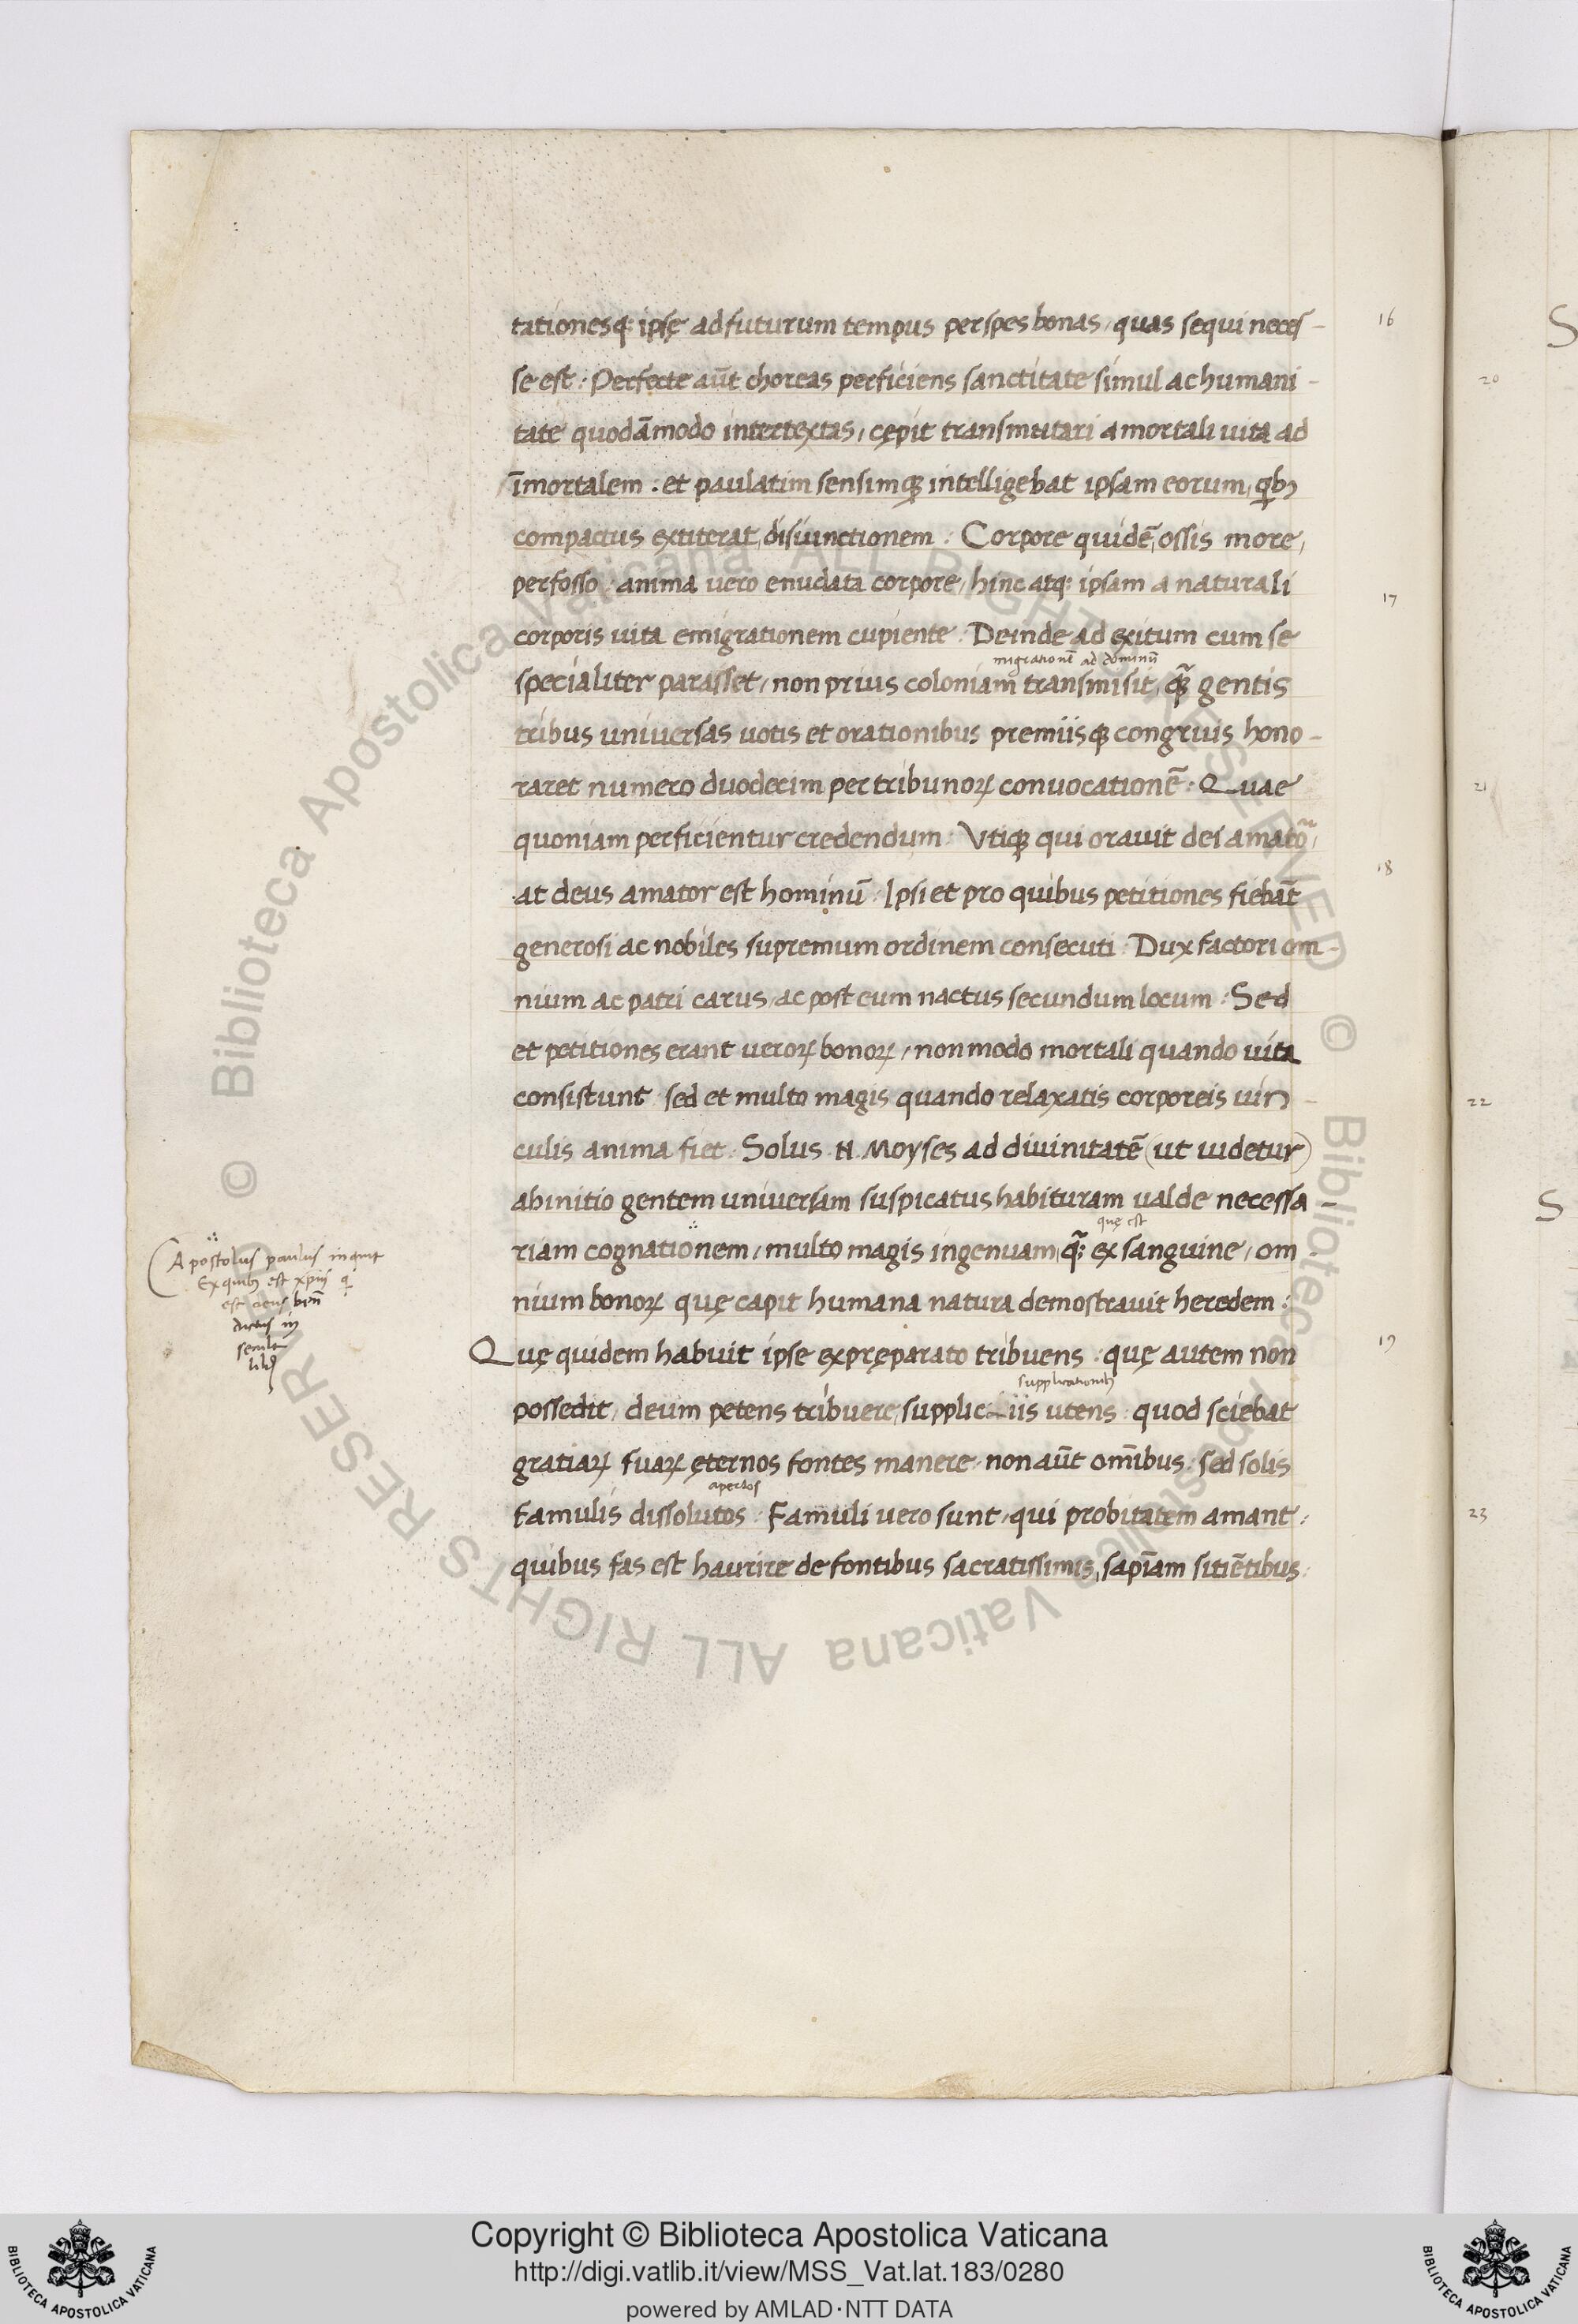 tationesq: ipsę ad futurum tempus per spes bonas, quas sequi neces-
se est: Perfecte aūt choreas perficiens sanctitate simul ac humani-
tate quodāmodo intertextas, cępit transmutari a mortali uita ad
īmortalem: et paulatim sensimqꝫ intelligebat ipsam eorum, qbꝫ
compactus extiterat, disiunctionem: Corpore quidē, ossis more,
perfosso: anima uero enudata corpore, hinc atq: ipsam a naturali
corporis uita emigrationem cupiente: Deinde ad exitum cum se
migrationē ad dominū
specialiter parasset, non prius coloniam transmisit, qꝫ̃ gentis
tribus universas uotis et orationibus premiisqꝫ congruis hono-
raret numero duodecim per tribunoꝝ convocationē: Quae
quoniam perficientur credendum: Vtiqꝫ qui orauit dei amatō,
at deus amator est hominū: Ipsi et pro quibus petitiones fiebāt
generosi ac nobiles supremum ordinem consecuti: Dux factori om-
nium ac patri carus, ac post eum nactus secundum locum: Sed
et petitiones erant ueroꝝ bonoꝝ, non modo mortali quando uita
consistunt sed et multo magis quando relaxatis corporeis uin-
culis anima fiet: Solus .N. Moyses ad diuinitatē (ut uidetur)
abinitio gentem universam suspicatus habituram ualde necessa-
quę est
riam cognationem, multo magis ingenuam, qꝫ̃: ex sanguine, om-
nium bonoꝝ quę capit humana natura demostrauit heredem:
Quę quidem habuit ipse ex pręparato tribuens: quę autem non
supplicationibꝫ
possedit, deum petens tribuere, suppliciis utens: quod sciebat
gratiaꝝ suaꝝ ęternos fontes manere: non aūt om̄ibus: sed solis
apertos
famulis dissolutos: Famuli uero sunt, qui probitatem amant:
quibus fas est haurire de fontibus sacratissimis, sapīam sitiētibus:
Apostolus paulus inquit
Ex quibꝫ est xpūs q
est deus bnn̄
dictus in
16
17
18
19
20
21
22
23
S
S
© Biblioteca Apostolica Vaticana ALL RIGHTS RESERVED © Biblioteca Apostolica Vaticana ALL RIGHTS RESERVED
Copyright © Biblioteca Apostolica Vaticana
http://digi.vatlib.it/view/MSS_Vat.lat.183/0280
powered by AMLAD·NTT DATA
BIBLIOTECA APOSTOLICA VATICANA
BIBLIOTECA APOSTOLICA VATICANA